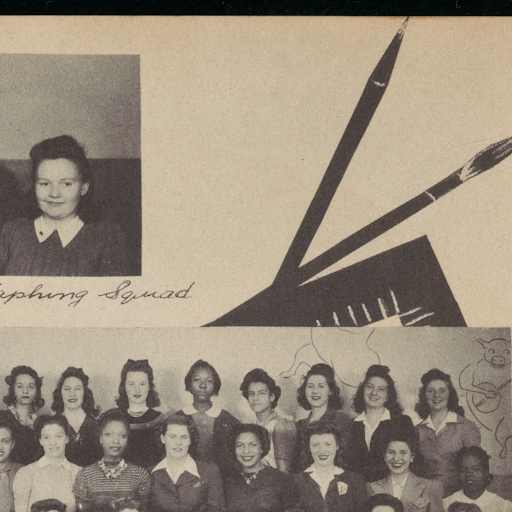 aphing Squad